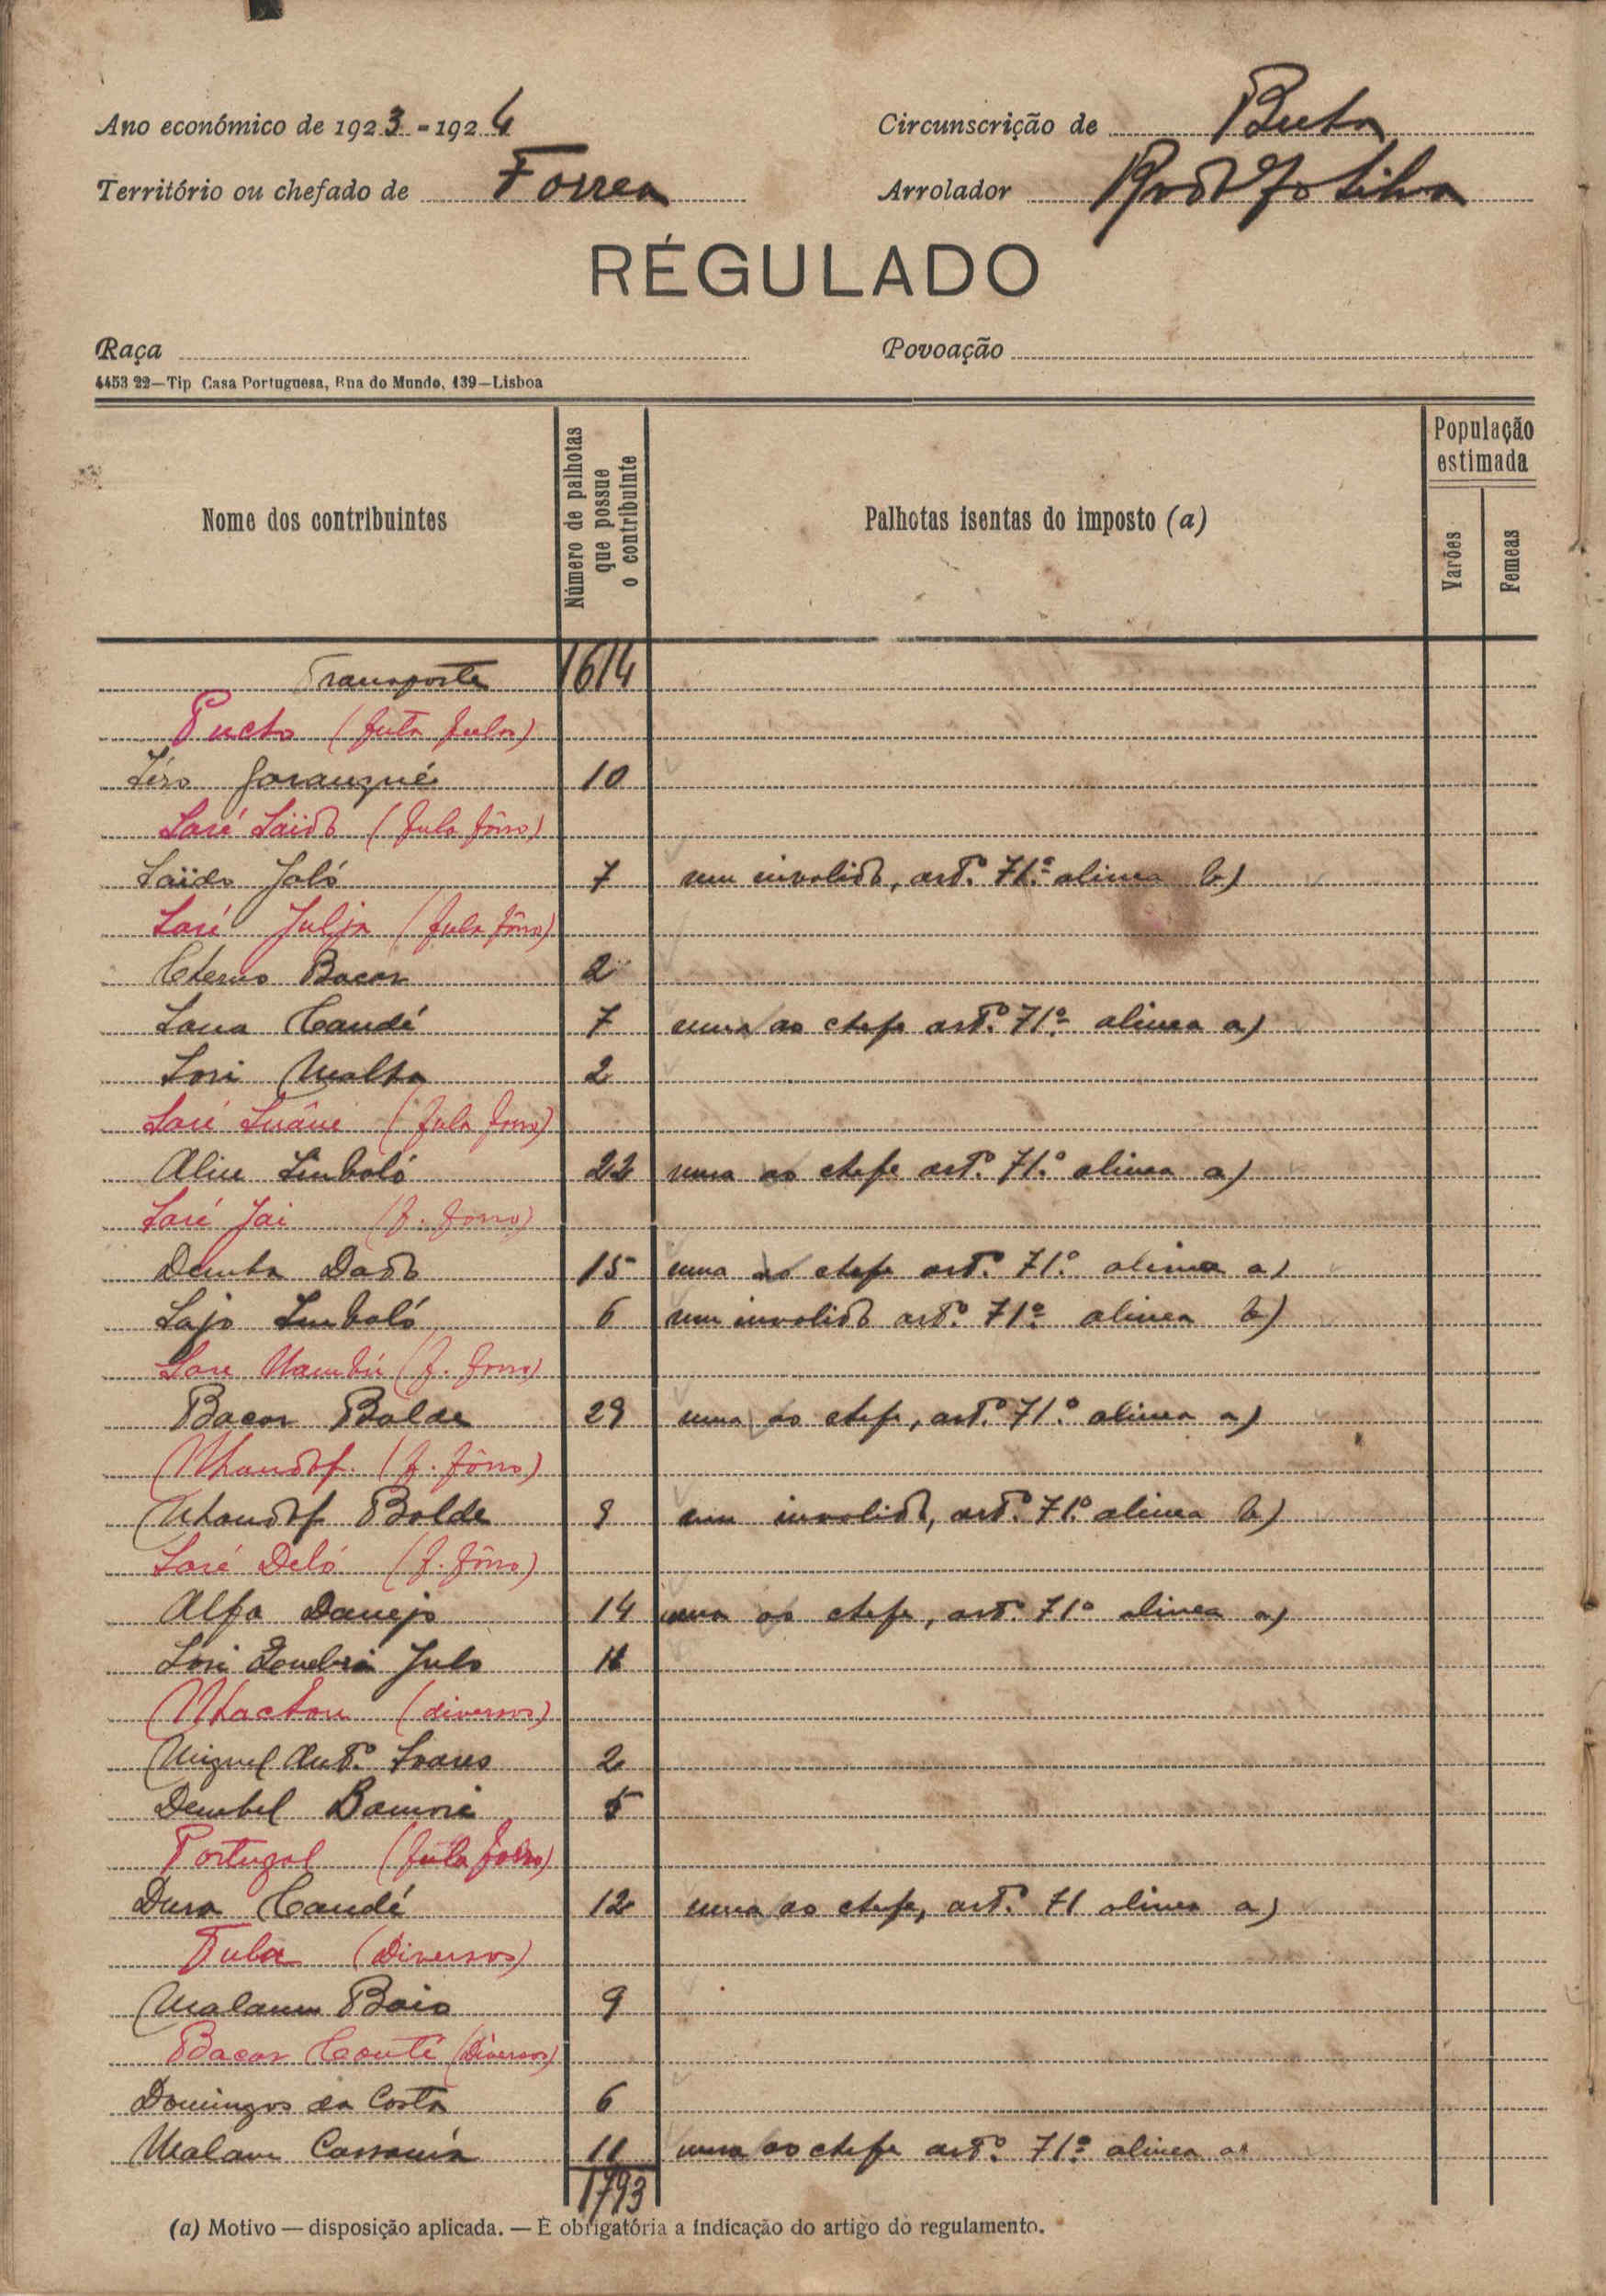 Ano económico de 1923-1924
Circunscrição de Buba
Território ou chefado de Forrea
Arrolador Silva
RÉGULADO
Raça
Povoação
4453 22—Tip Casa Portuguesa, Rua do Mundo, 139—Lisboa
Nome dos contribuintes
Número de palhotas que possue o contribuinte
Palhotas isentas do imposto (a)
População estimada
Varões
Femeas
Transporte 1614
(futa fulas)
10
Saré Saïdo (fula fôrro)
Saïdo Jaló 7 um invalido, artº. 71.º alinea b)
Saré Julja (fula fôrro)
Bacar 2
Candé 7 uma ao chefe artº. 71º alinea a)
Sori 2
Saré (fula forro)
Aliu Embaló 22 uma ao chefe artº. 71.º alinea a)
Saré Jai (f. forro)
Demba Dado 15 uma ao chefe artº. 71.º alinea a)
Embaló 6 um invalido artº. 71º alinea b)
Saré (f. forro)
Bacar Balde 29 uma ao chefe, artº. 71.º alinea a)
(f. fôrro)
Balde 9 um invalido, artº. 71º alinea b)
Saré Deló (f. fôrro)
Alfa Danejo 14 uma ao chefe, artº. 71º alinea a)
Sori
(diversos)
Miguel Antº. Soares 2
5
Portugal (fula forro)
Dura Candé 12 uma ao chefe, artº. 71 alinea a)
(Diversos)
Malam Baio 9
Bacar Conté (Diversos)
Domingos da Costa 6
Malam Cassamá 11 uma ao chefe artº. 71º alinea a)
1793
(a) Motivo — disposição aplicada. — É obrigatória a indicação do artigo do regulamento.